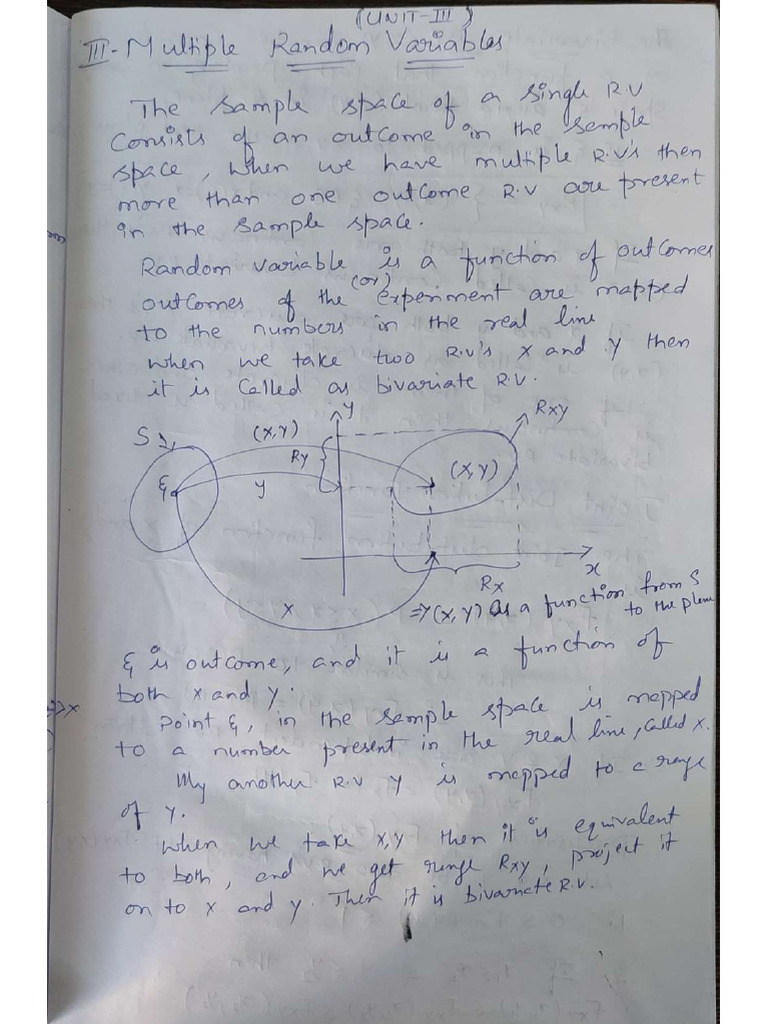 (UNIT-III)
III - Multiple Random Variables
The sample space of a single R.V
Consists of an outcome in the sample
space, when we have multiple R.V's then
more than one outcome R.V are present
in the sample space.
Random variable is a function of outcomes
(or)
outcomes of the experiment are mapped
to the numbers in the real line
when we take two R.V's X and Y then
it is called as bivariate R.V.
y
Rxy
S
(X,Y)
Ry
(X,Y)
ξ
y
x
Rx
X
=> (X,Y) as a function from S
to the plane
ξ is outcome, and it is a function of
both X and Y.
Point ξ, in the sample space is mapped
to a number present in the real line, called X.
lly another R.V Y is mapped to a range
of Y.
when we take X,Y then it is equivalent
to both, and we get range Rxy, project it
on to X and Y. Then it is bivariate R.V.